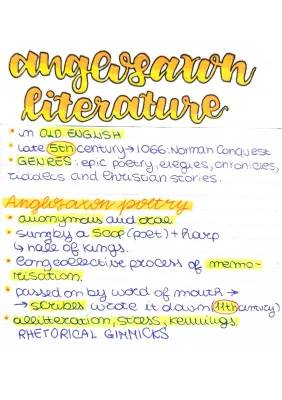 anglosaxon
literature
• in OLD ENGLISH
• late 5th century → 1066: Norman Conquest
• GENRES: epic poetry, elegies, chronicles,
riddles and Christian stories.
Anglosaxon poetry
• anonymous and oral
• sung by a SCOP (poet) + harp
↳ halls of kings.
• long collective process of memo-
risation.
• passed on by word of mouth →
→ scribes wrote it down (11th century)
• alliteration, stress, kennings.
RHETORICAL GIMMICKS